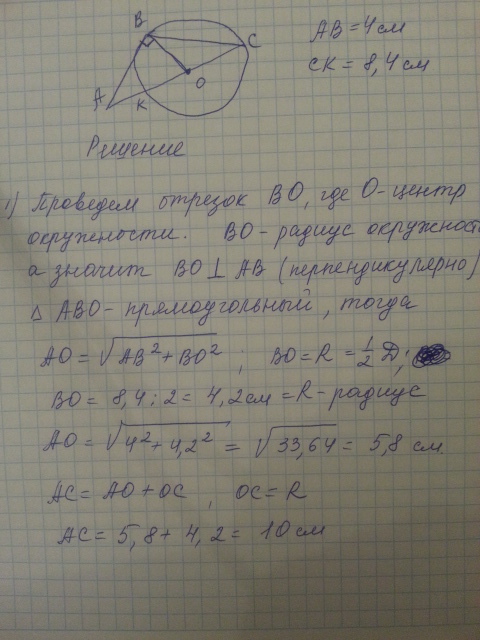 B
C
A
K
O
AB = 4 см
CK = 8,4 см
Решение
1) Проведем отрезок BO, где O-центр
окружности. BO - радиус окружност
а значит BO ⊥ AB (перпендикулярно)
Δ ABO - прямоугольный, тогда
AO = √AB² + BO² ; BO = R = 1/2 D;
BO = 8,4 : 2 = 4,2 см = R - радиус
AO = √4² + 4,2² = √33,64 = 5,8 см
AC = AO + OC , OC = R
AC = 5,8 + 4,2 = 10 см